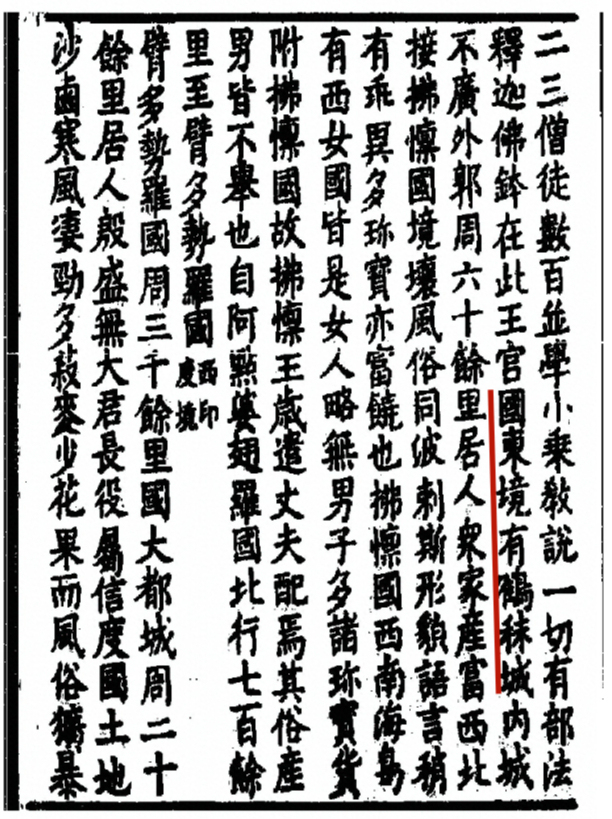 二三僧徒數百並學小乗敎說一切有部法
釋迦佛鉢在此王官國東境有鶴秣城内城
不廣外郭周六十餘里居人衆家産富西北
接拂懍國境壤風俗同波剌斯形貌語言稍
有乖異多珎寶亦富饒也拂懍國西南海島
有西女國皆是女人略無男子多諸珎寶貨
附拂懍國故拂懍王歳遣丈夫配焉其俗産
男皆不舉也自阿㸃婆翅羅國北行七百餘
里至臂多勢羅國西印度境
臂多勢羅國周三千餘里國大都城周二十
餘里居人殷盛無大君長役屬信度國土地
沙鹵寒風凄勁多菽麥少花果而風俗獷暴